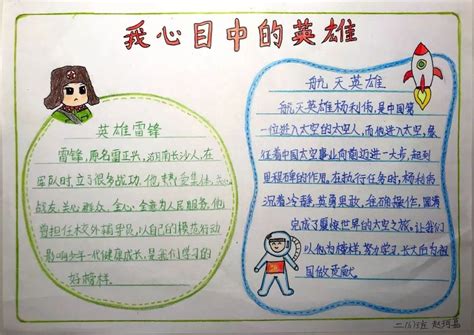 我心目中的英雄
英雄雷锋
雷锋,原名雷正兴,湖南长沙人,在
军队时,立了很多战功。他,热爱集体,关心
战友,关心群众,全心、全意为人民服务。他
曾担任校外辅导员,以自己的模范行动
影响少年一代健康成长,是我们学习的
好榜样。
航天英雄
航天英雄杨利伟,是中国第
一位进入太空的太空人,而他进入太空,象
征着中国太空事业向前迈进一大步,起到
里程碑的作用。在执行任务时,杨利伟
沉着冷静,英勇果敢,
完成了震惊世界的太空之旅,让我们
以他为榜样,努力学习,长大为祖
国做贡献。